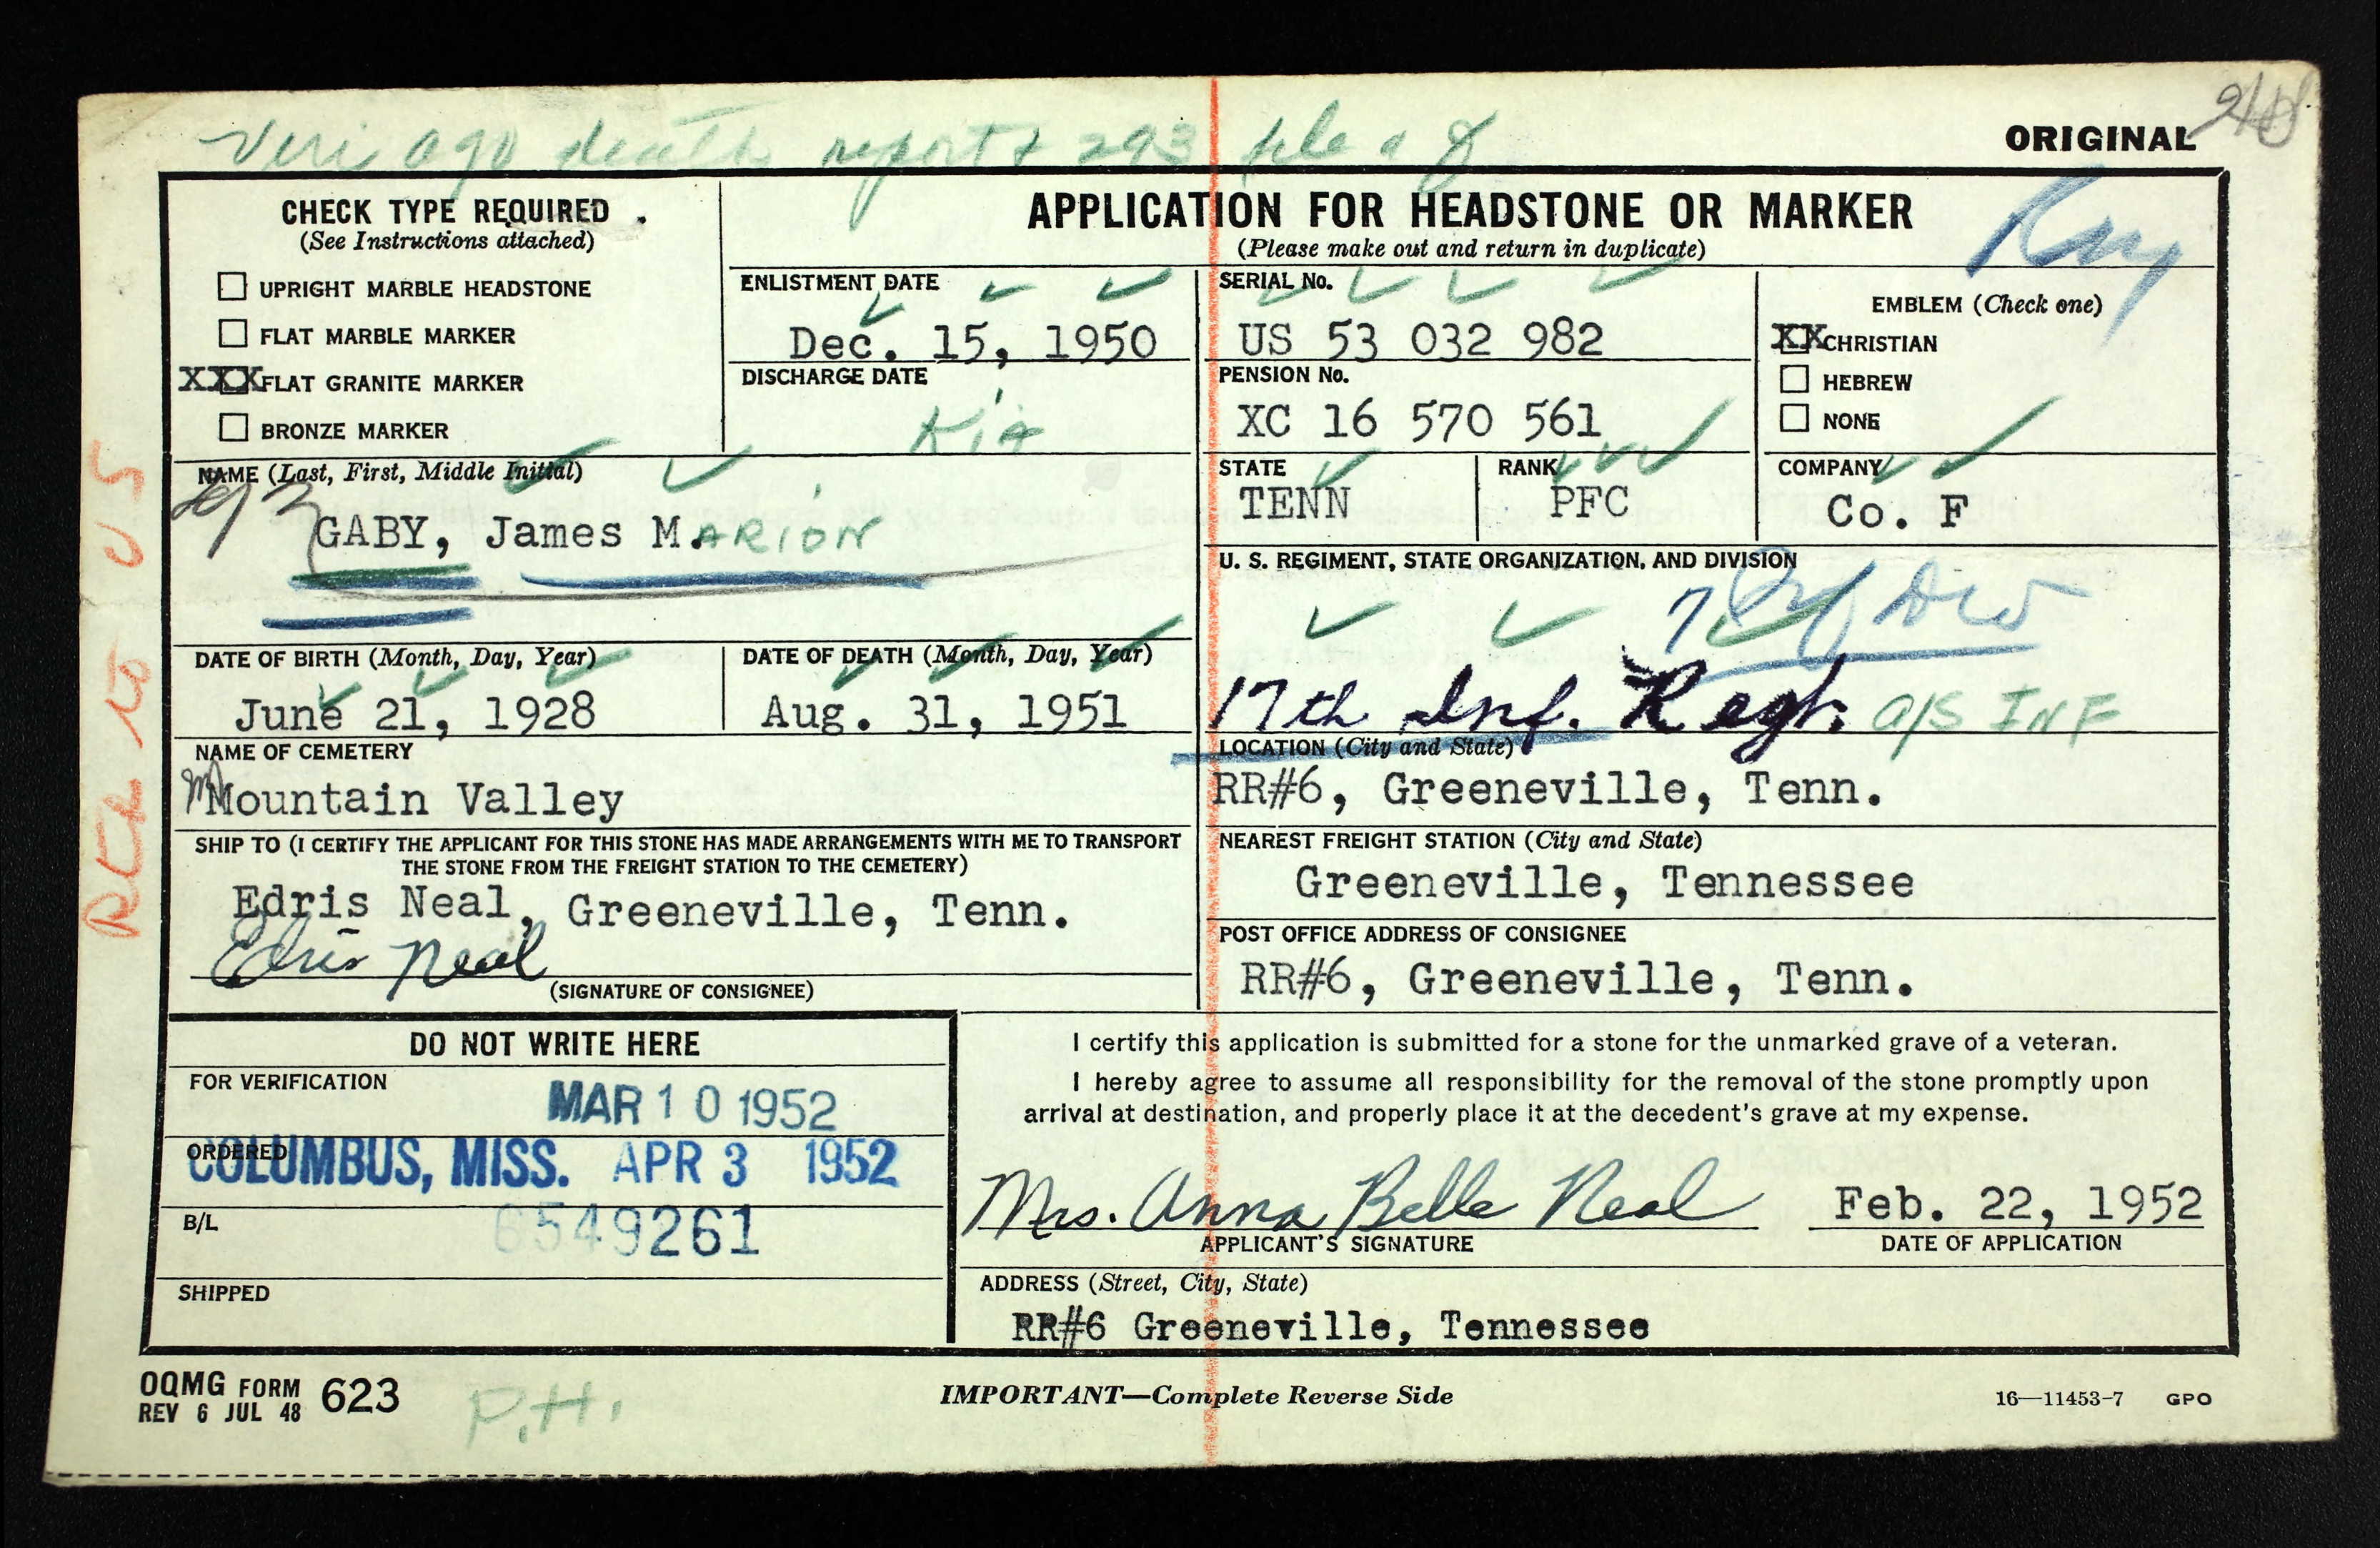 Veri ago death reports 293 file
ORIGINAL
CHECK TYPE REQUIRED
(See Instructions attached)
UPRIGHT MARBLE HEADSTONE
FLAT MARBLE MARKER
XXX FLAT GRANITE MARKER
BRONZE MARKER
APPLICATION FOR HEADSTONE OR MARKER
(Please make out and return in duplicate)
ENLISTMENT DATE
Dec. 15, 1950
DISCHARGE DATE
KIA
SERIAL No.
US 53 032 982
PENSION No.
XC 16 570 561
EMBLEM (Check one)
XX CHRISTIAN
HEBREW
NONE
NAME (Last, First, Middle Initial)
GABY, James M. ARION
STATE
TENN
RANK
PFC
COMPANY
Co. F
U. S. REGIMENT, STATE ORGANIZATION, AND DIVISION
7 Inf Div
17th Inf. Regt. A/S INF
DATE OF BIRTH (Month, Day, Year)
June 21, 1928
DATE OF DEATH (Month, Day, Year)
Aug. 31, 1951
NAME OF CEMETERY
Mountain Valley
LOCATION (City and State)
RR#6, Greeneville, Tenn.
SHIP TO (I CERTIFY THE APPLICANT FOR THIS STONE HAS MADE ARRANGEMENTS WITH ME TO TRANSPORT
THE STONE FROM THE FREIGHT STATION TO THE CEMETERY)
Edris Neal, Greeneville, Tenn.
Edris Neal
(SIGNATURE OF CONSIGNEE)
NEAREST FREIGHT STATION (City and State)
Greeneville, Tennessee
POST OFFICE ADDRESS OF CONSIGNEE
RR#6, Greeneville, Tenn.
DO NOT WRITE HERE
FOR VERIFICATION
MAR 10 1952
ORDERED
COLUMBUS, MISS. APR 3 1952
B/L
6549261
SHIPPED
I certify this application is submitted for a stone for the unmarked grave of a veteran.
I hereby agree to assume all responsibility for the removal of the stone promptly upon
arrival at destination, and properly place it at the decedent's grave at my expense.
Mrs. Anna Belle Neal
APPLICANT'S SIGNATURE
Feb. 22, 1952
DATE OF APPLICATION
ADDRESS (Street, City, State)
RR#6 Greeneville, Tennessee
OQMG FORM 623
REV 6 JUL 48
P.H.
IMPORTANT—Complete Reverse Side
16—11453-7 GPO